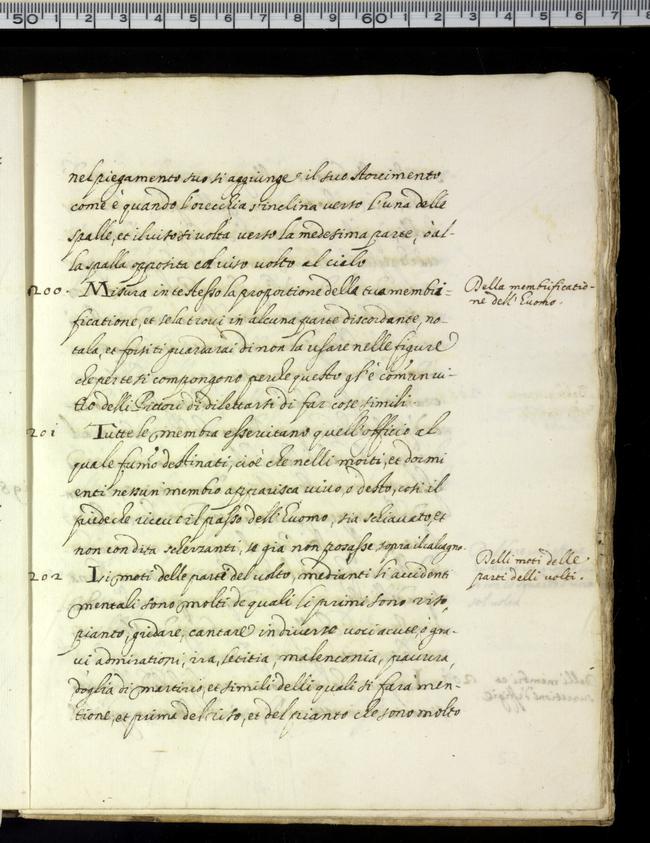 nel piegamento suo si aggiunge il suo storcimento
come è quando l'orecchia s'inclina verso l'una delle
spalle, et il viso si volta verso la medesima parte, ò al-
la spalla opposita col viso volto al cielo
200. Misura in te stesso la proportione della tua membri-
ficatione, et se la trovi in alcuna parte discordante, no-
tala, et forsi ti guardarai di non la usare nelle figure
che per te si compongono perche questo è comun vi-
tio delli Pittori di dilettarsi di far cose simili
Della membrificatio-
ne dell'huomo.
201 Tutte le membra essercitano quell'officio al
quale furno destinati, cioè che nelli morti, et dormi
enti nessun membro apparisca vivo, o desto, cosi il
piede che riceve il passo dell'huomo, sia schiavato, et
non con dita scherzanti, se già non posasse sopra il calcagno.
202 Li moti delle parte del volto, mediante li accidenti
mentali sono molti de quali li primi sono riso,
pianto, gridare, cantare in diverse voci acute, ò gra-
vi admirationi, ira, letitia, malenconia, paurra,
doglia di martirio, et simili delli quali si fara men-
tione, et prima del riso, et del pianto che sono molto
Delli moti delle
parti delli volti.